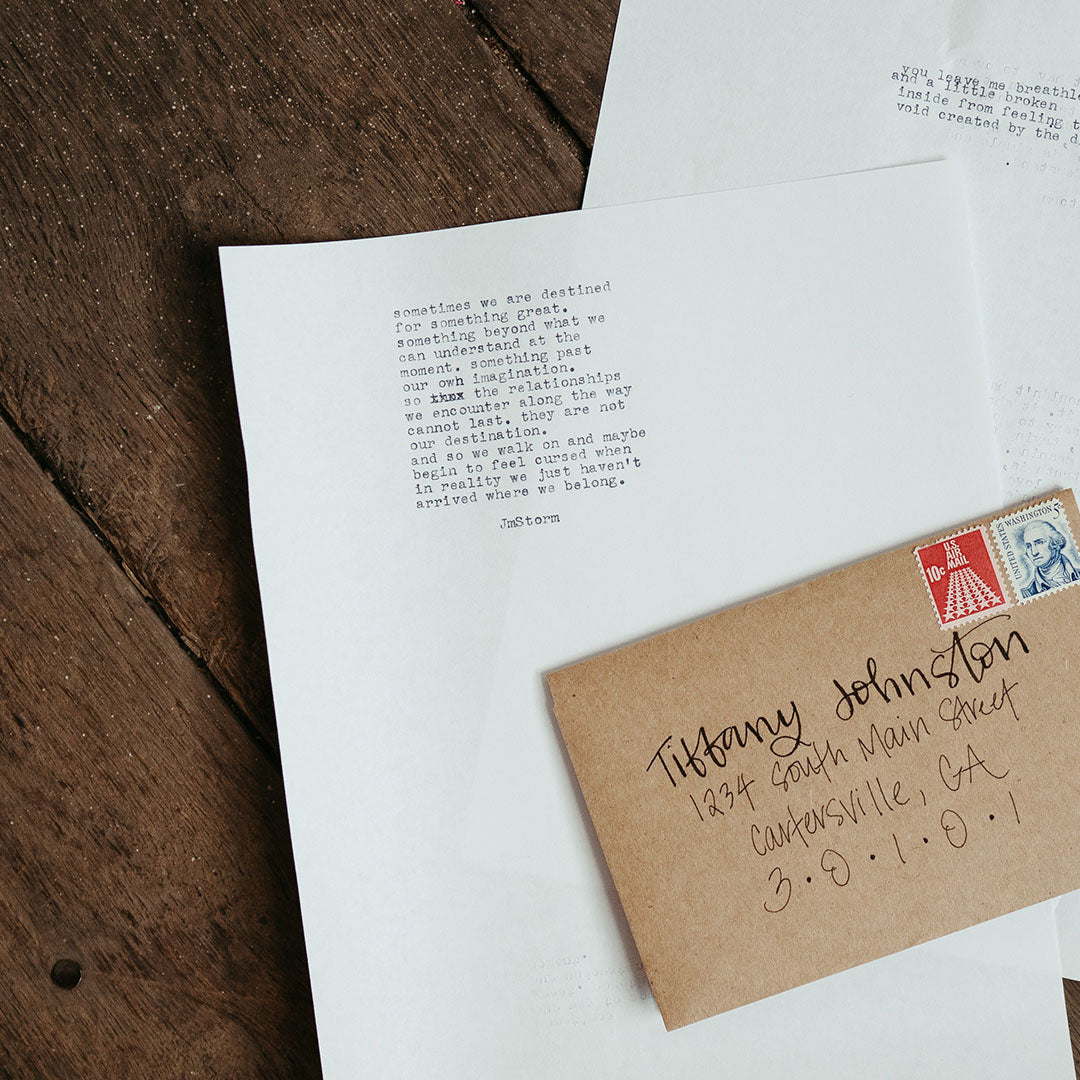 you leave me
and a little broken
inside from feeling
void created by the
sometimes we are destined
for something great.
something beyond what we
can understand at the
moment. something past
our own imagination.
so the relationships
we encounter along the way
cannot last. they are not
our destination.
and so we walk on and maybe
begin to feel cursed when
in reality we just haven't
arrived where we belong.
JmStorm
U.S.
AIR
MAIL
10c
UNITED STATES WASHINGTON 5c
Tiffany Johnston
1234 South Main Street
Cartersville, GA
3•0•1•0•1